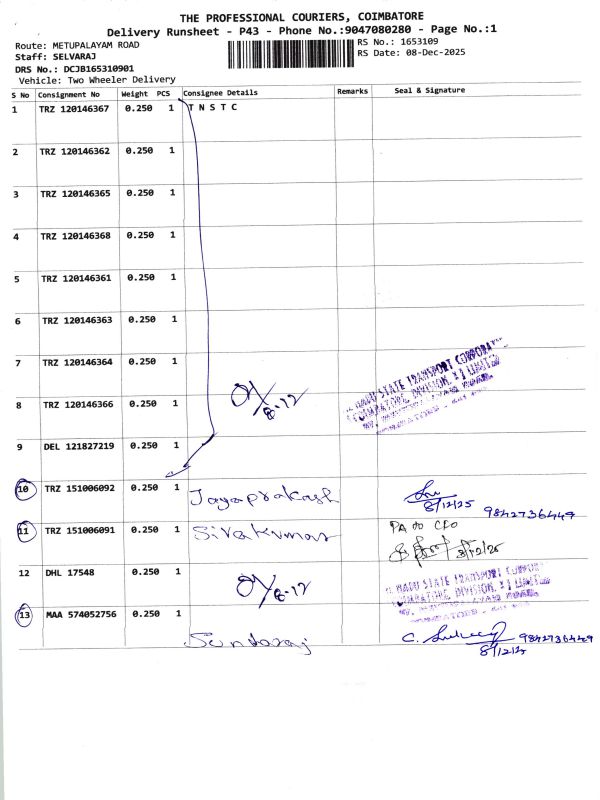 THE PROFESSIONAL COURIERS, COIMBATORE
Delivery Runsheet - P43 - Phone No.:9047080280 - Page No.:1
Route: METUPALAYAM ROAD
Staff: SELVARAJ
DRS No.: DCJB165310901
Vehicle: Two Wheeler Delivery
RS No.: 1653109
RS Date: 08-Dec-2025
S No Consignment No Weight PCS Consignee Details Remarks Seal & Signature
1 TRZ 120146367 0.250 1 T N S T C
2 TRZ 120146362 0.250 1
3 TRZ 120146365 0.250 1
4 TRZ 120146368 0.250 1
5 TRZ 120146361 0.250 1
6 TRZ 120146363 0.250 1
7 TRZ 120146364 0.250 1
STATE TRANSPORT CORPORAT
DIVISION
LIMITED
8 TRZ 120146366 0.250 1
8-12
9 DEL 121827219 0.250 1
10 TRZ 151006092 0.250 1 Jayaprakash
8/12/25 9842736449
11 TRZ 151006091 0.250 1 Sivakumar
PA to CEO
8/12/25
12 DHL 17548 0.250 1
8-12
STATE TRANSPORT
DIVISION
LIMITED
13 MAA 574052756 0.250 1 Sundaraj
C. 9842736449
8/12/25